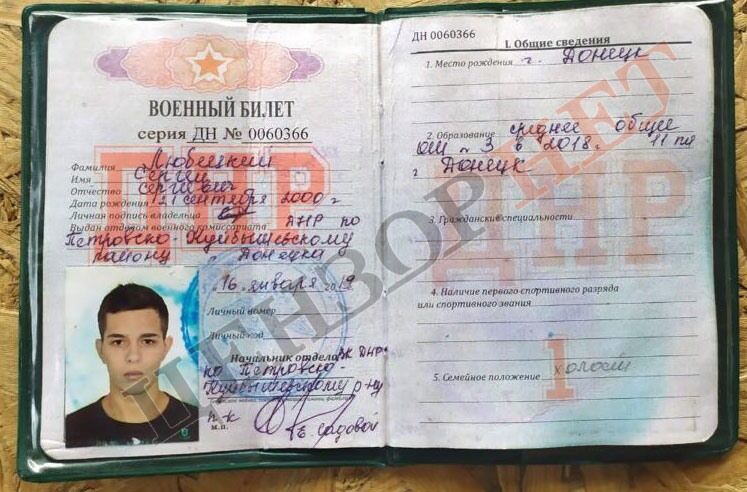 ВОЕННЫЙ БИЛЕТ
серия ДН № 0060366
Фамилия Любецкий
Имя Сергей
Отчество Сергеевич
Дата рождения 21 сентября 2000 г
Личная подпись владельца
Выдан отделом военного комиссариата ДНР по
Петровско-Куйбышевскому
району г Донецка
16 января 2019
Личный номер
Личный код
Начальник отдела ВК ДНР
по Петровско-
Куйбышевскому р-ну
п-к
м.п.
Е. Садовой
ДНР
ДН 0060366
I. Общие сведения
1. Место рождения г. Донецк
2. Образование среднее общее
ОШ - 3 в 2018. 11 кл
г Донецк
3. Гражданские специальности
4. Наличие первого спортивного разряда
или спортивного звания
5. Семейное положение холост
ДНР
1
ЦЕНЗОР.НЕТ